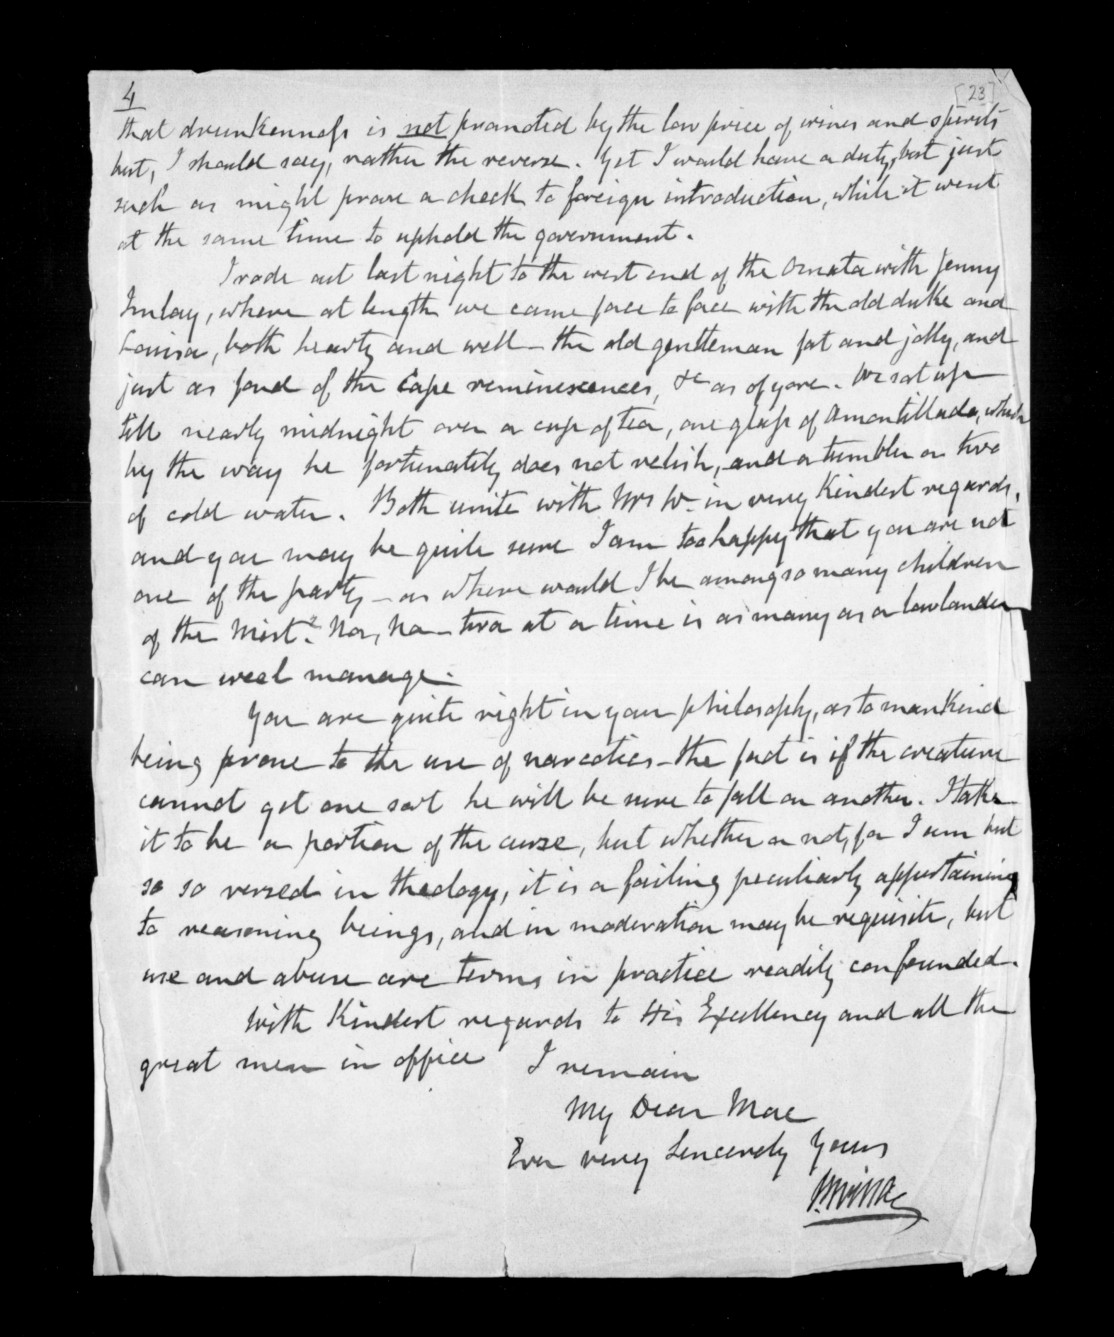 4
[23]
that drunkenness is not promoted by the low price of wines and spirits
but, I should say, rather the reverse. Yet I would have a duty, but just
such as might prove a check to foreign introduction, while it went
at the same time to uphold the government.
I rode out last night to the west end of the Omata with Jenny
Imlay, where at length we came face to face with the old duke and
Louisa, both hearty and well - the old gentleman fat and jolly, and
just as fond of the Cape reminiscences, &c as of yore. We sat up
till nearly midnight over a cup of tea, one glass of Amontillado, which
by the way he fortunately does not relish, and a tumbler or two
of cold water. Both unite with Mrs W- in very kindest regards,
and you may be quite sure I am too happy that you are not
one of the party - or where would I be among so many children
of the Mist? No, no - two at a time is as many as a lowlander
can weel manage.
You are quite right in your philosophy, as to mankind
being prone to the use of narcotics - the fact is if the creature
cannot get one sort he will be sure to fall on another. I take
it to be a portion of the curse, but whether or not, for I am but
so so versed in theology, it is a failing peculiarly appertaining
to reasoning beings, and in moderation may be requisite, but
use and abuse are terms in practice readily confounded.
With kindest regards to His Excellency and all the
great men in office I remain
My Dear Mac
Ever very Sincerely Yours